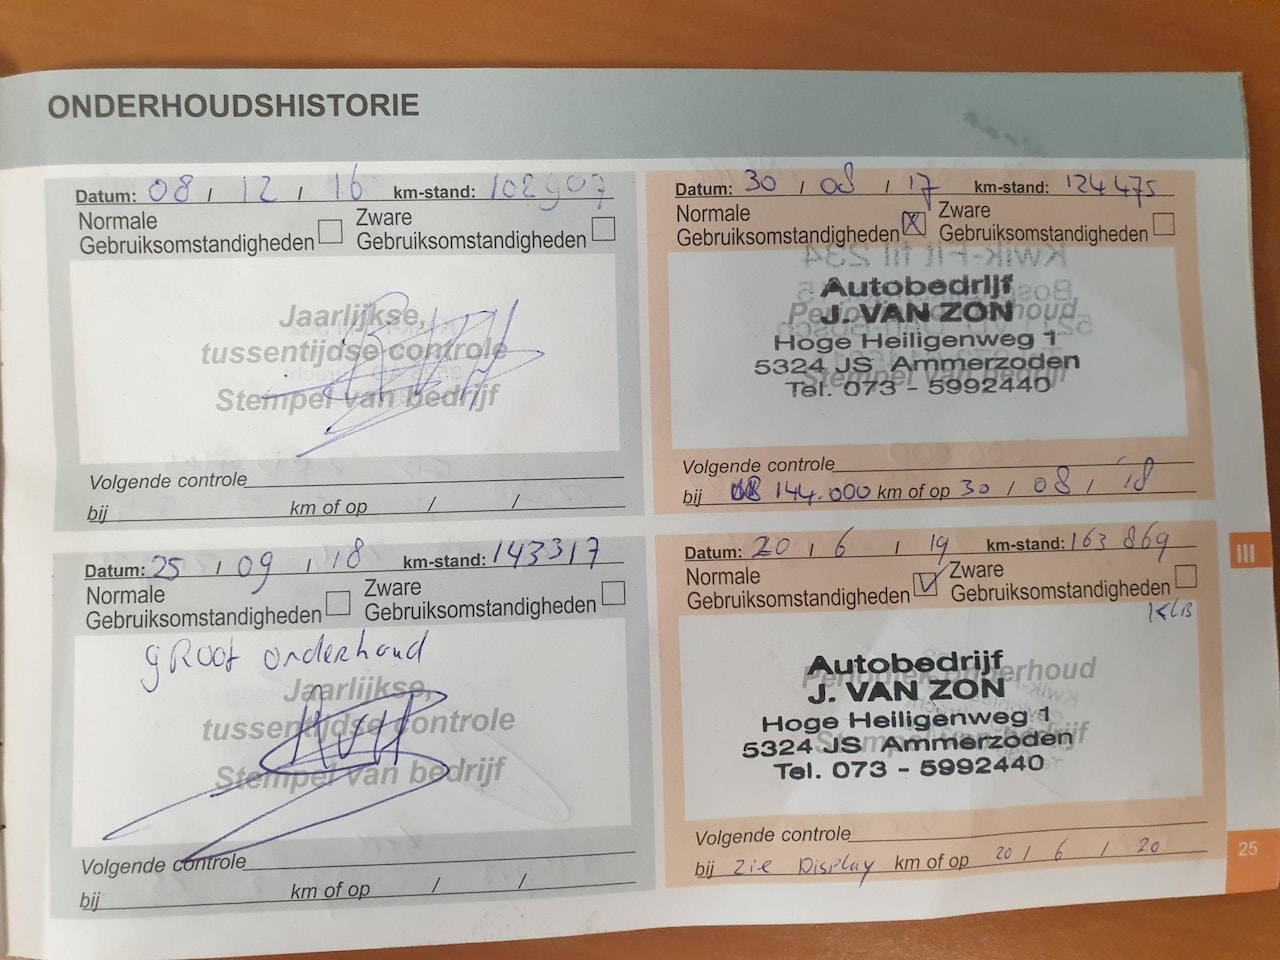 ONDERHOUDSHISTORIE
Datum: 08 / 12 / 16 km-stand: 102907
Normale Gebruiksomstandigheden
Zware Gebruiksomstandigheden
Jaarlijkse,
tussentijdse controle
Stempel van bedrijf
Volgende controle
bij km of op / /
Datum: 30 / 08 / 17 km-stand: 124475
Normale Gebruiksomstandigheden X
Zware Gebruiksomstandigheden
Autobedrijf
J. VAN ZON
Hoge Heiligenweg 1
5324 JS Ammerzoden
Tel. 073 - 5992440
Volgende controle
bij 144.000 km of op 30 / 08 / 18
Datum: 25 / 09 / 18 km-stand: 143317
Normale Gebruiksomstandigheden
Zware Gebruiksomstandigheden
gRoot onderhoud
Jaarlijkse,
tussentijdse controle
Stempel van bedrijf
Volgende controle
bij km of op / /
Datum: 20 / 6 / 19 km-stand: 163869
Normale Gebruiksomstandigheden
Zware Gebruiksomstandigheden
KLB
Periodiek onderhoud
Stempel van bedrijf
Autobedrijf
J. VAN ZON
Hoge Heiligenweg 1
5324 JS Ammerzoden
Tel. 073 - 5992440
Volgende controle
bij zie Display km of op 20 / 6 / 20
III
25